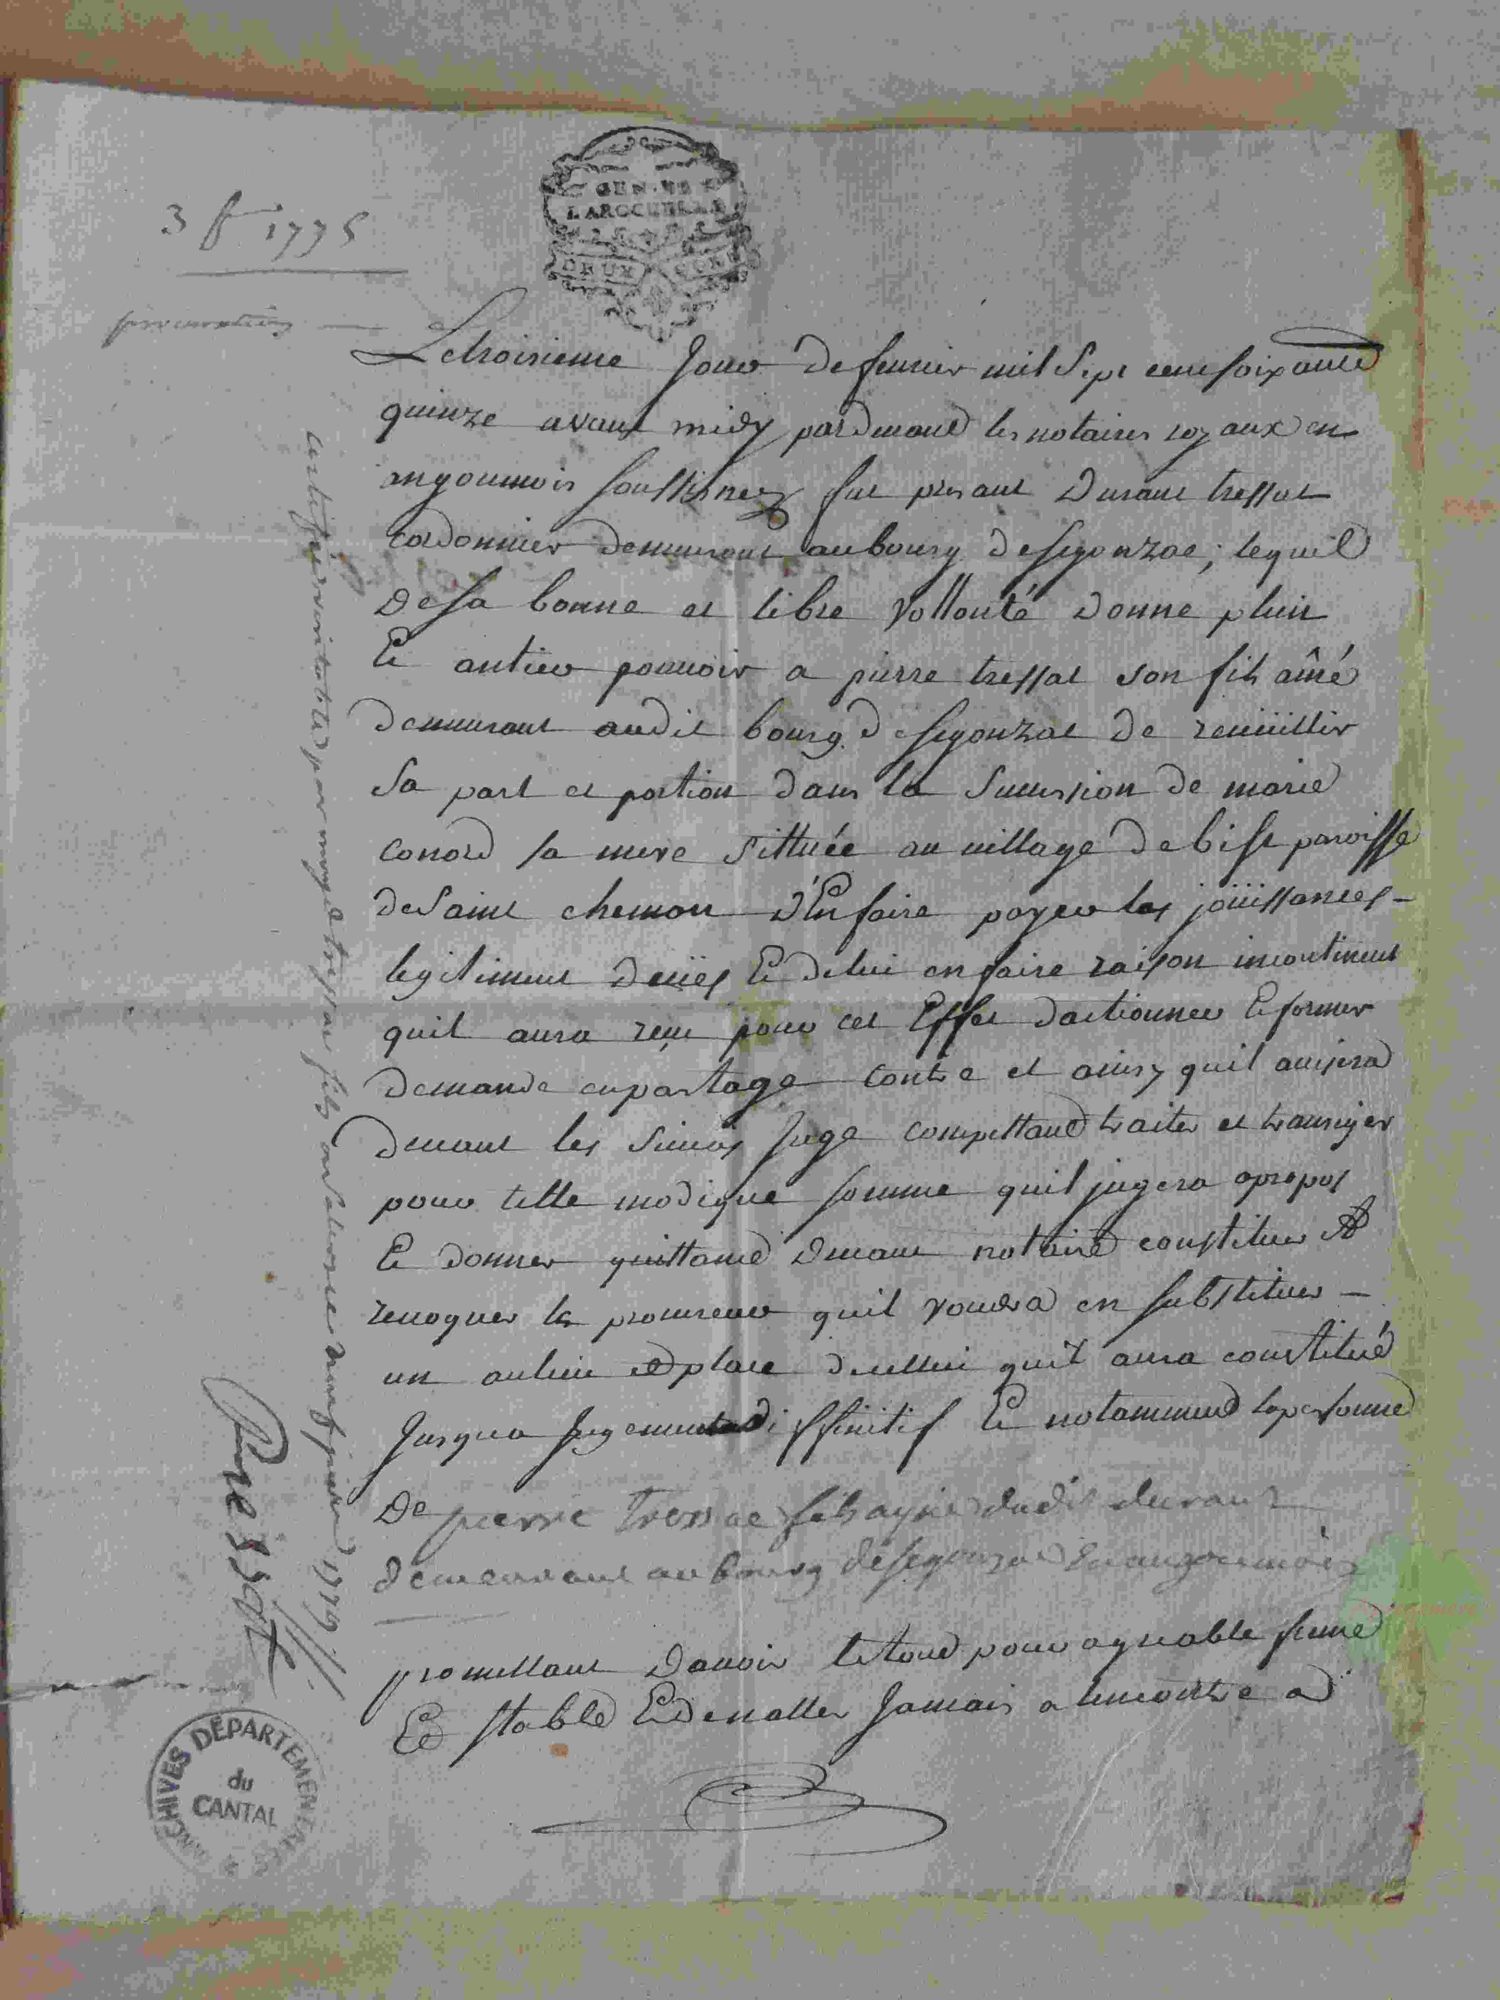 GEN. DE
LAROCHELLE
DEUX
3 f 1775
procuration
Letroisieme Jour defeuvrier mil sept cent soixante
quinze avant midy pardevand les notaires royaux en
angoumois soussignez fut presant Durant tressat
cordonnier demeurant aubourg desegonzac, lequel
Desa bonne et libre vollonté donne plein
Et antier pouvoir a pierre tressat son fils aîné
demeurant audit bourg desegonzac de reuüillir
sa part et portion dans la sucession de marie
conord sa mere sittuée au village de bist paroisse
deSaint chemon d'Enfaire payer les joüissances
legitiment deües Et delui enfaire raison incontinent
quil aura reçu pour cet Effet dactionner Eformer
demande enpartage contre et ainsy quil avisera
devant les Juge compettand traiter et transiger
pour telle modique somme quil jugera apropos
Et donner quittance devant notaire constituer Et
revoquer les procureur quil voudra en substituer
un autre place dicelluy quil aura constitué
Jusqua Jugement diffinitif Et notamment lapersonne
De pierre Tressac fils ayné dudit durant
demeurant aubourg desegonzac En angoumois
promettant Davoir letoud pour agreable ferme
Et stable Et denaller Jamais alencontre a
certiffié veritable par moy tressat fils 1779
ARCHIVES DÉPARTEMENTALES
du
CANTAL